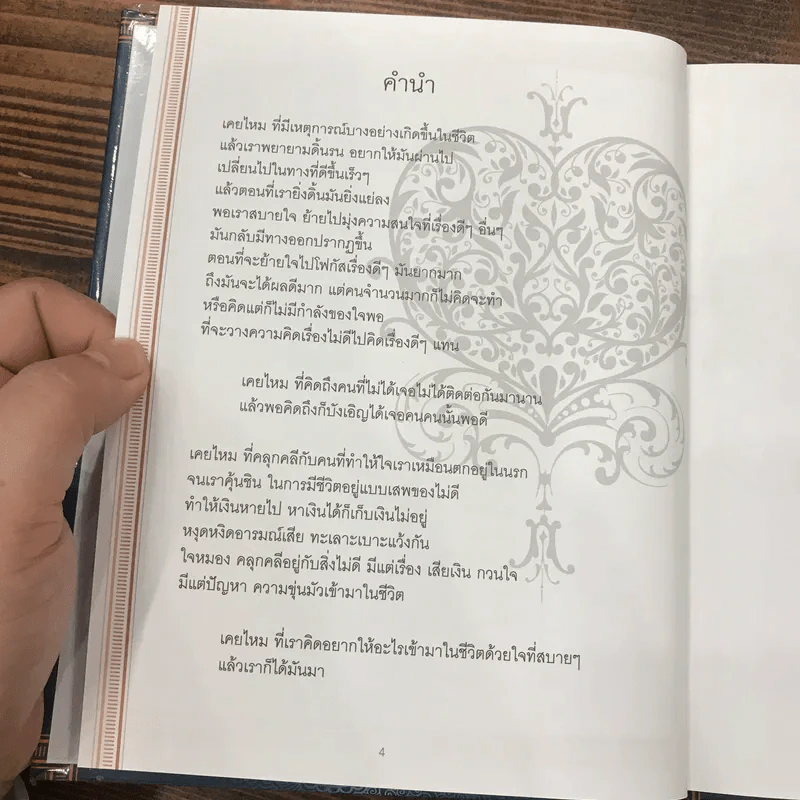 คำนำ
เคยไหม ที่มีเหตุการณ์บางอย่างเกิดขึ้นในชีวิต
แล้วเราพยายามดิ้นรน อยากให้มันผ่านไป
เปลี่ยนไปในทางที่ดีขึ้นเร็วๆ
แล้วตอนที่เรายิ่งดิ้นมันยิ่งแย่ลง
พอเราสบายใจ ย้ายไปมุ่งความสนใจที่เรื่องดีๆ อื่นๆ
มันกลับมีทางออกปรากฏขึ้น
ตอนที่จะย้ายใจไปโฟกัสเรื่องดีๆ มันยากมาก
ถึงมันจะได้ผลดีมาก แต่คนจำนวนมากก็ไม่คิดจะทำ
หรือคิดแต่ก็ไม่มีกำลังของใจพอ
ที่จะวางความคิดเรื่องไม่ดีไปคิดเรื่องดีๆ แทน
เคยไหม ที่คิดถึงคนที่ไม่ได้เจอไม่ได้ติดต่อกันมานาน
แล้วพอคิดถึงก็บังเอิญได้เจอคนคนนั้นพอดี
เคยไหม ที่คลุกคลีกับคนที่ทำให้ใจเราเหมือนตกอยู่ในนรก
จนเราคุ้นชิน ในการมีชีวิตอยู่แบบเสพของไม่ดี
ทำให้เงินหายไป หาเงินได้ก็เก็บเงินไม่อยู่
หงุดหงิดอารมณ์เสีย ทะเลาะเบาะแว้งกัน
ใจหมอง คลุกคลีอยู่กับสิ่งไม่ดี มีแต่เรื่อง เสียเงิน กวนใจ
มีแต่ปัญหา ความขุ่นมัวเข้ามาในชีวิต
เคยไหม ที่เราคิดอยากให้อะไรเข้ามาในชีวิตด้วยใจที่สบายๆ
แล้วเราก็ได้มันมา
4